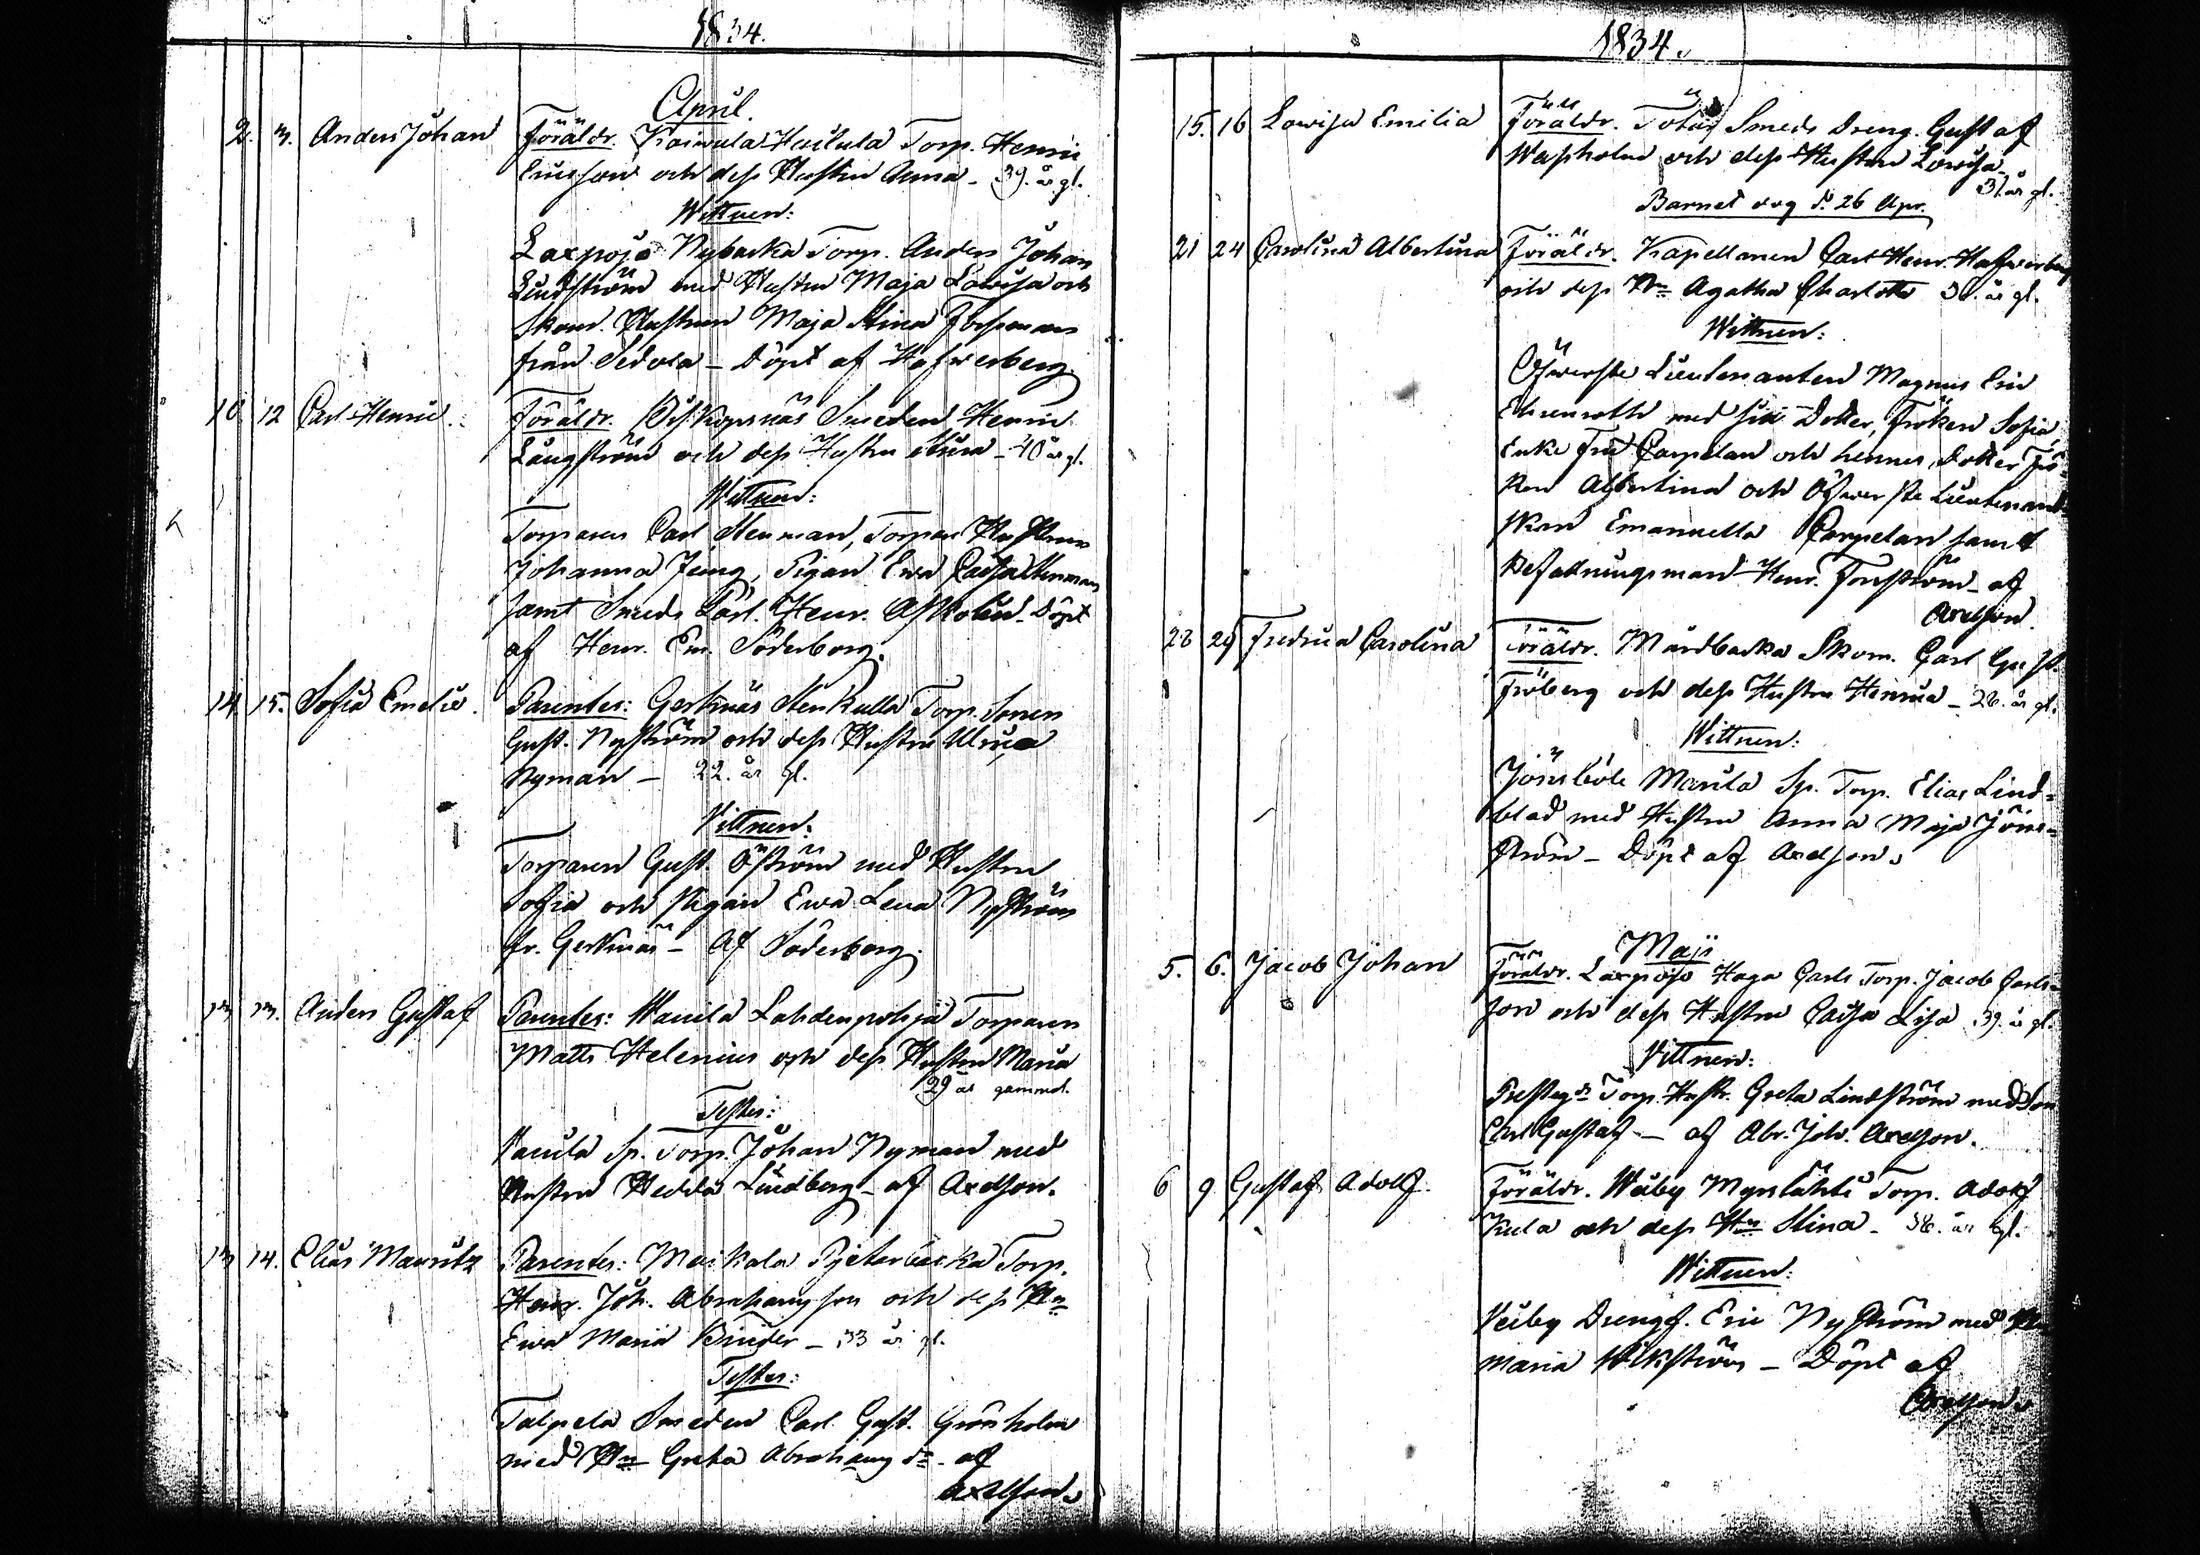 1834.
April.
2. 3. Anders Johan Föräldr. Torp. Henric
Ericsson och dess Hustru Anna - 39. år gl.
Wittnen:
Laxpojo Nybacka Torp. Anders Johan
Lindström med Hustru Maja Lowisa och
Skom. Hustrun Maja Stina Forsman
från Sedola - Döpt af Hafverberg.
10. 12 Carl Henric. Föräldr. Smeden Henric
Långström och dess Hustru Stina - 40 år gl.
Wittnen:
Torparen Carl Stenman, Torpare Hustrun
Johanna Jung, Pigan Ewa Caisa Stenman
samt Smeds Lärl. Henr. Asholin - Döpt
af Henr. Em. Söderborg.
14. 15. Sofia Emelie. Parentes: Gerknäs Stenkulla Torp. Sonen
Gust. Nyström och dess Hustru Ulrica
Nyman - 22. år gl.
Vittnen:
Torparen Gust. Öström med Hustru
Sofia och Pigan Ewa Lena Nyström
fr. Gerknäs - Af Söderborg.
13. 13. Anders Gustaf Parentes: Lahdenpohja Torparen
Matts Helenius och dess Hustru Maria
29 år gammal.
Testes:
Sp. Torp. Johan Nyman med
Hustru Hedda Lindberg - af Axelson.
13 14. Elias Mauritz Parentes: Maikala Torp.
Henr. Joh. Abrahamsson och dess Hu
Ewa Maria Binder - 33 år gl.
Testes:
Talpela Smeden Carl Gust. Grönholm
med Hu Greta Abrahams dr - af
Axelson.
1834.
15. 16 Lowisa Emilia Föräldr. Smeds Dreng. Gustaf
och dess Hustru Lowisa
31 år gl.
Barnet dog d. 26 Apr.
21 24 Carolina Albertina Föräldr. Kapellanen Carl Henr. Hafverberg
och dess Hu Agatha Charlotta år gl.
Wittnen:
Öfwerste Lieutenanten Magnus Eric
Ehrenroth med sin Dotter, Fröken Sofia
Enke Fru Carpelan och hennes Dotter Frö-
ken Albertina och Öfwerste Lieutenant-
skan Emanuella Carpelan samt
Befallningsman Henr. Forsström - af
Axelson.
28 29 Fredrica Carolina Föräldr. Mårdbacka Skom. Carl Gust.
Fröberg och dess Hustru Henrica - 28. år gl.
Wittnen:
Jönsböle Marila Sp. Torp. Elias Lind-
blad med Hustru Anna Maja Jöns-
ström - Döpt af Axelson.
Maji
5. 6. Jacob Johan Föräldr. Laxpojo Haga Carls Torp. Jacob Carls-
son och dess Hustru Caisa Lisa 39. år gl.
Vittnen:
Torp. Hustr. Greta Lindström med Son
Carl Gustaf - af Abr. Joh. Axelson.
6 9 Gustaf Adolf. Föräldr. Torp. Adolf
Kula och dess Hu Stina - 38. år gl.
Wittnen:
Drengf. Eric Nyström med Hu
Maria Wikström - Döpt af
Axelson.